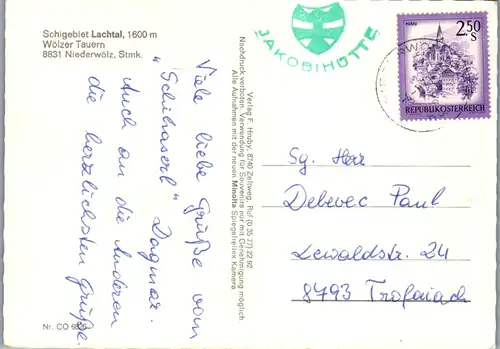 Schigebiet Lachtal, 1600 m
Wölzer Tauern
8831 Niederwölz, Stmk.
JAKOBIHÜTTE
2.50
S
REPUBLIK ÖSTERREICH
Viele liebe Grüße vom
„Schihaserl" Dagmar.
Auch an die Anderen
die herzlichsten Grüße.
Verlag F. Hruby, 8740 Zeltweg, Ruf (0 35 77) 22 92
Nachdruck verboten. Verwendung für Souvenirs nur mit Genehmigung möglich
Alle Aufnahmen mit der neuen Minolta Spiegelreflex Kamera
Sg. Herr
Debevec Paul
Lewaldstr. 24
8793 Trofaiach
Nr. CO 6825